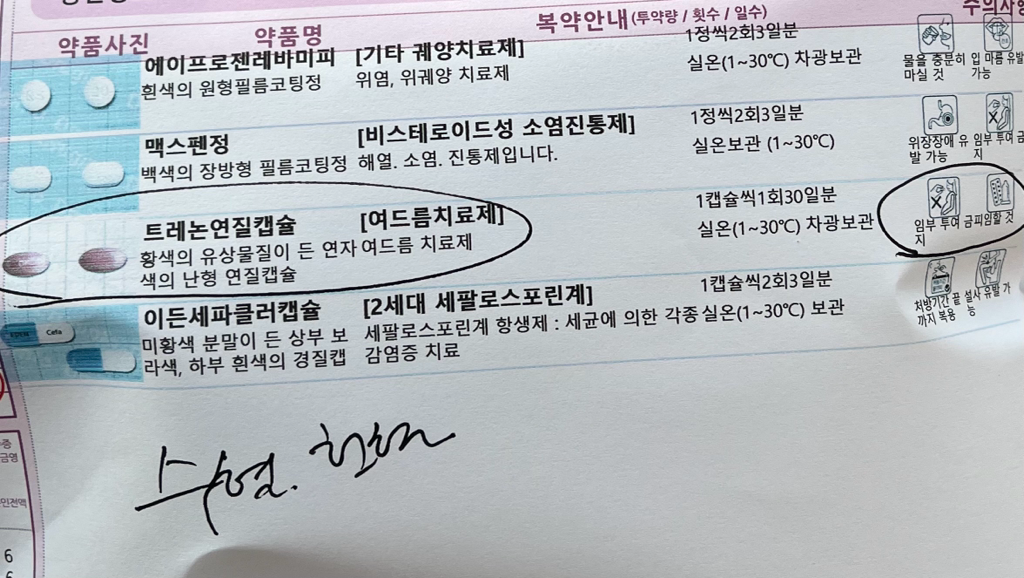 약품사진 약품명 복약안내(투약량 / 횟수 / 일수) 주의사항
에이프로젠레바미피 [기타 궤양치료제] 1정씩2회3일분
흰색의 원형필름코팅정 위염, 위궤양 치료제 실온(1~30℃) 차광보관
물을 충분히 마실 것
입 마름 유발 가능
맥스펜정 [비스테로이드성 소염진통제] 1정씩2회3일분
백색의 장방형 필름코팅정 해열. 소염. 진통제입니다. 실온보관 (1~30℃)
위장장애 유발 가능
임부 투여 금지
트레논연질캡슐 [여드름치료제] 1캡슐씩1회30일분
황색의 유상물질이 든 연자색의 난형 연질캡슐 여드름 치료제 실온(1~30℃) 차광보관
임부 투여 금지
피임할 것
이든세파클러캡슐 [2세대 세팔로스포린계] 1캡슐씩2회3일분
미황색 분말이 든 상부 보라색, 하부 흰색의 경질캡 세팔로스포린계 항생제 : 세균에 의한 각종 감염증 치료 실온(1~30℃) 보관
처방기간 끝까지 복용
설사 유발 가능
Cefa
금영
인전액
6
6